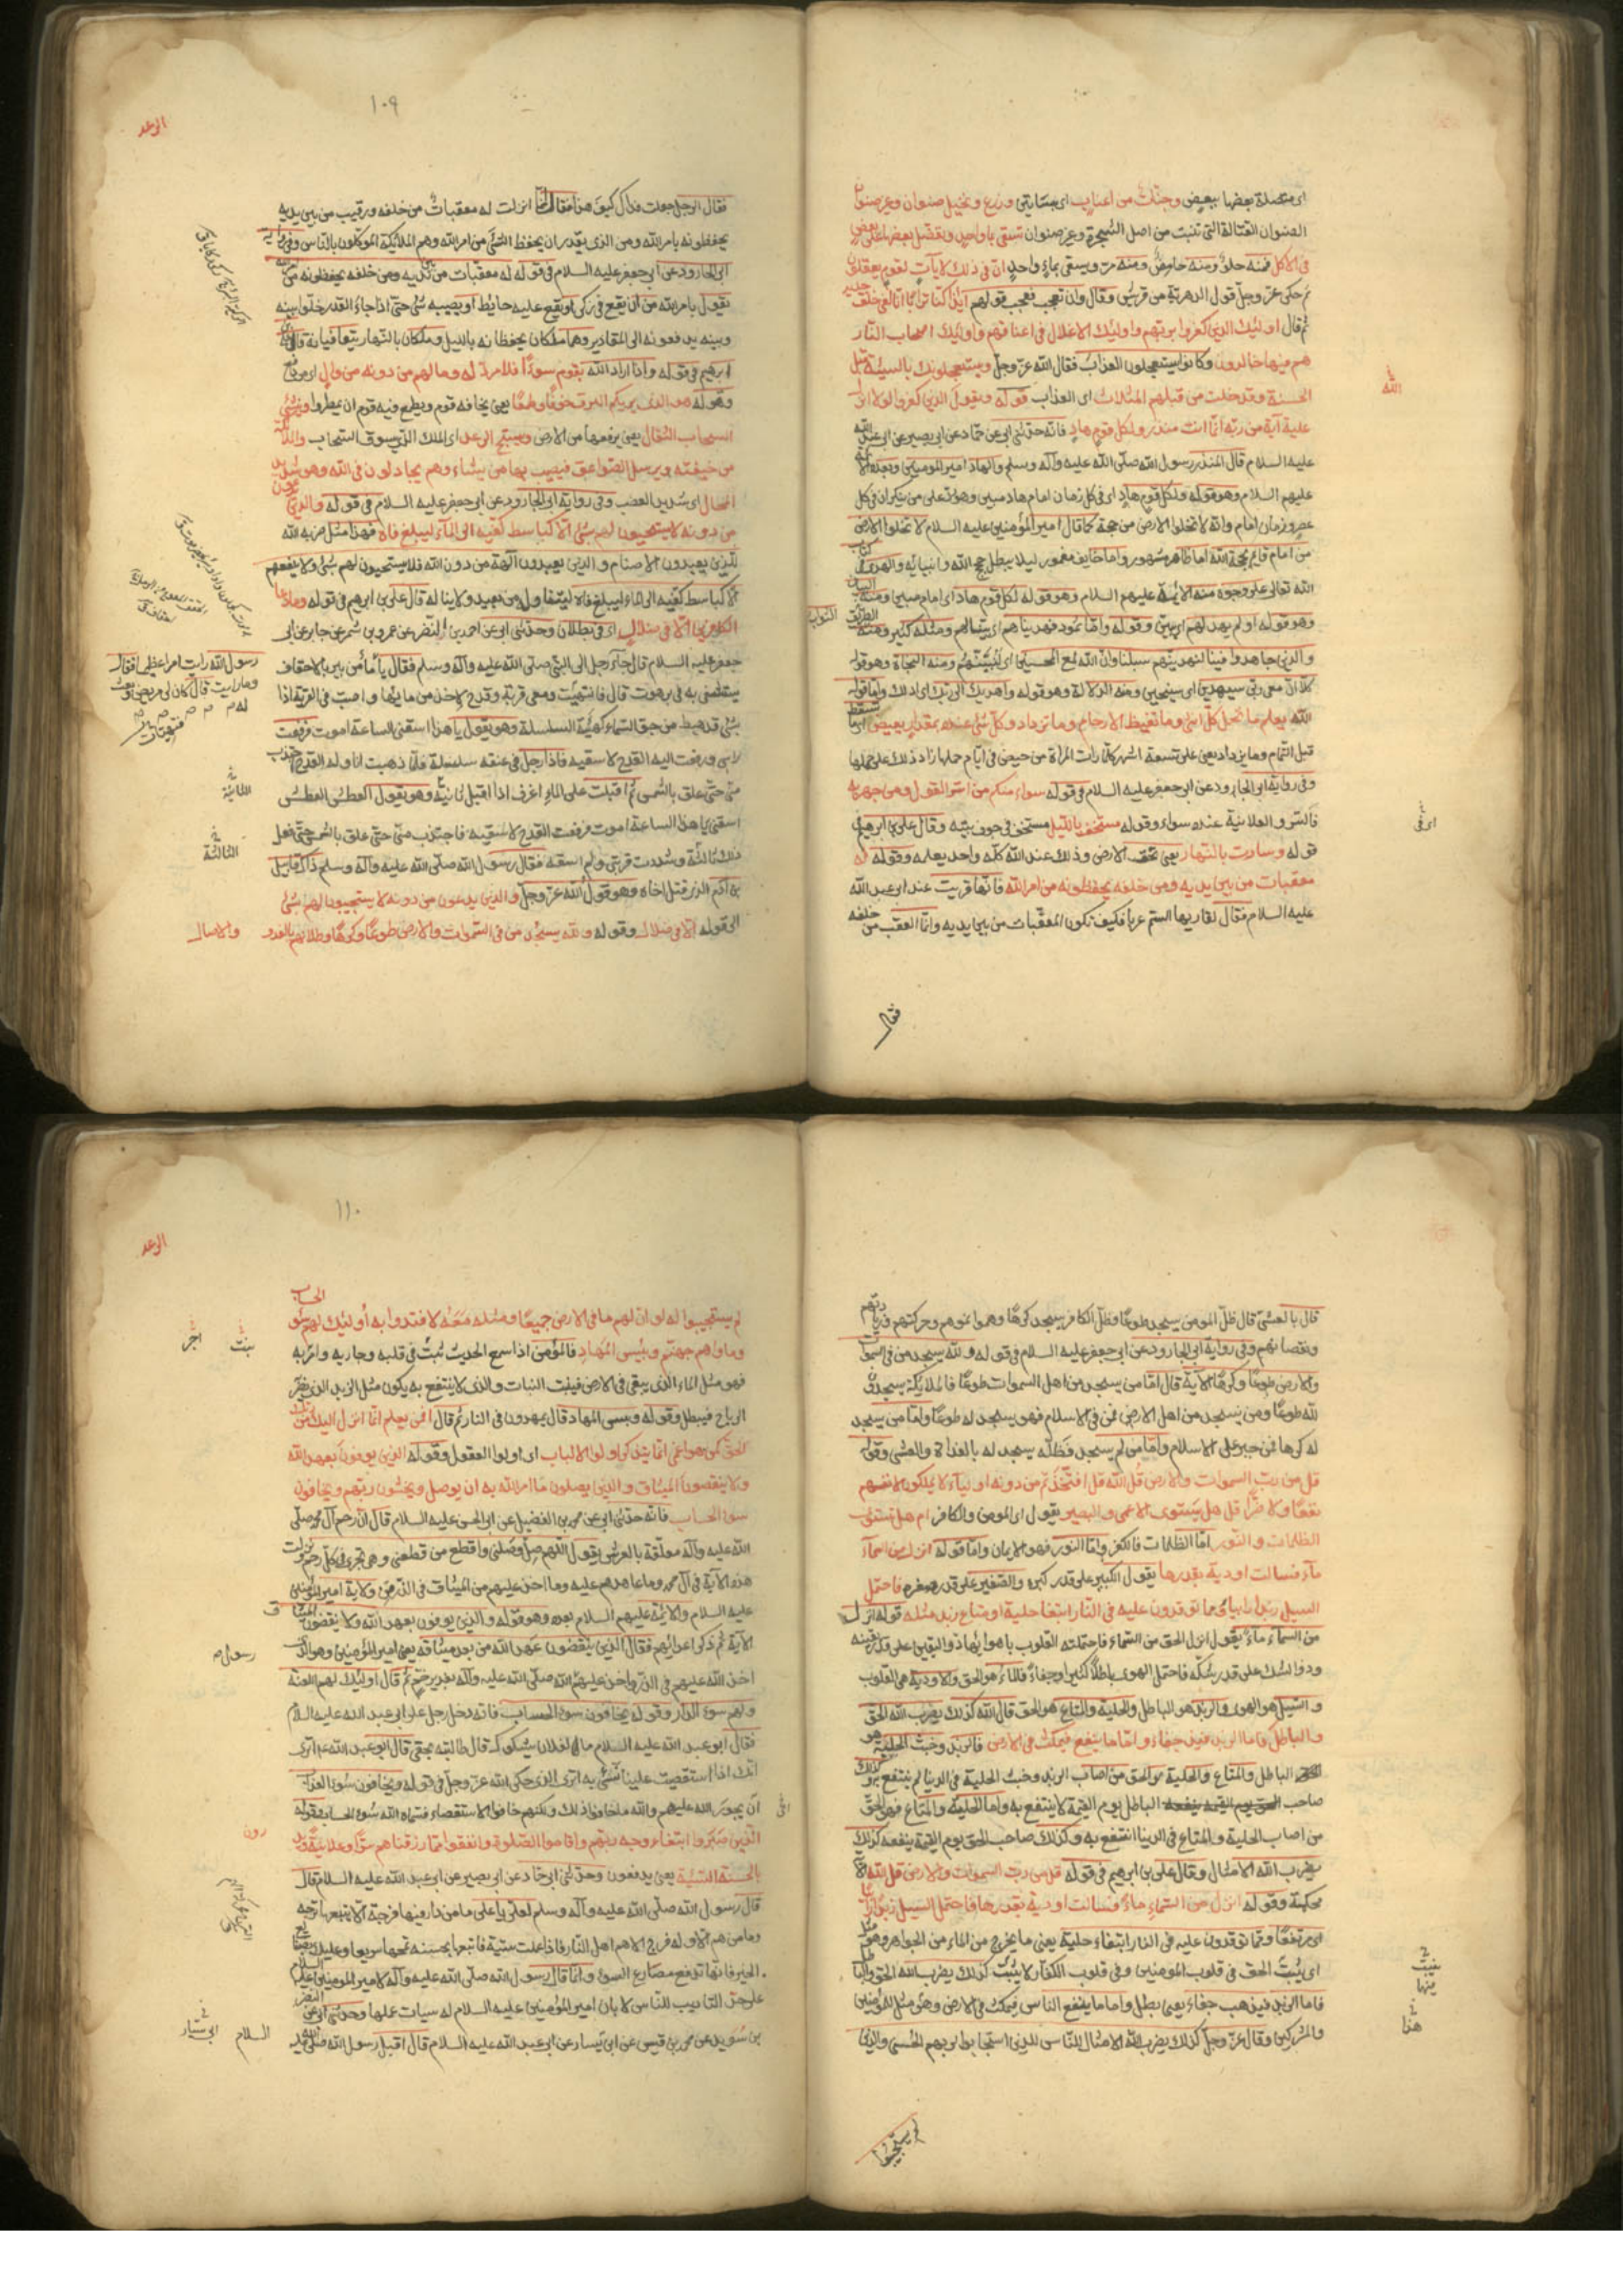 اى متصلة بعضها ببعض وجنّات من اعناب اى بساتين وزرع ونخيل صنوان وغير صنوان
الصنوان الفتالة التى تنبت من اصل الشجرة وغير صنوان تسقى بماء واحد ونفضّل بعضها على بعض
فى الاكل فمنه حلو ومنه حامض ومنه مر ويسقى بماء واحد ان فى ذلك لآيات لقوم يعقلون
ثم حكى عزّ وجلّ قول الدهرية من قريش وقال وان تعجب فعجب قولهم ائذا كنّا ترابا انّا لفى خلق جديد
ثم قال اولئك الذين كفروا بربّهم واولئك الاغلال فى اعناقهم واولئك اصحاب النّار
هم فيها خالدون وكانوا يستعجلون العذاب فقال الله عزّ وجلّ ويستعجلونك بالسيئة قبل
الله
الحسنة وقد خلت من قبلهم المثلات اى العذاب قوله ويقول الذين كفروا لولا انزل
عليه آية من ربّه انّما انت منذر ولكل قوم هاد فانه حدثنى ابى عن حماد عن ابى بصير عن ابى عبد الله
عليه السلام قال المنذر رسول الله صلّى الله عليه وآله وسلم والهاد امير المومنين وبعده الائمة
عليهم السلام وهو قوله ولكل قوم هاد اى فى كل زمان امام هاد مبين وهو رد على من ينكر ان فى كل
عصر وزمان امام وانه لا تخلوا الارض من حجة كما قال امير المؤمنين عليه السلام لا تخلوا الارض
من امام قايم بحجة الله اما ظاهر مشهور واما خايف مغمور ليلا يبطل حجج الله وبيناته والهدى فى كتاب
الله تعالى على وجوه منه الايمّة عليهم السلام وهو قوله لكل قوم هاد اى امام مبين ومنه البيان
وهو قوله اولم يهد لهم اى يبين وقوله واما ثمود فهديناهم اى بينا لهم ومثله كثير ومنه الطريق الثواب
والذين جاهدوا فينا لنهدينّهم سبلنا وانّ الله لمع المحسنين اى لنثيبنّهم ومنه النجاة وهو قوله
كلّا انّ معى ربّى سيهدين اى سينجين ومنه الدلالة وهو قوله واهديك الى ربّك اى ادلك واما قوله
الله يعلم ما تحمل كل انثى وما تغيض الارحام وما تزداد وكلّ شئ عنده بمقدار
قبل التمام وما يزداد يعنى على تسعة اشهر كلّما رات المراة من حيض فى ايّام حملها زاد ذلك على حملها
وفى رواية ابى الجارود عن ابى جعفر عليه السلام فى قوله سواء منكم من اسرّ القول ومن جهر به
فالسّر والعلانية عنده سواء وقوله مستخف بالليل مستخف فى جوف بيته وقال على بن ابراهيم فى
قوله وسارب بالنّهار يعنى تحت الارض وذلك عند الله كلّه واحد يعلمه وقوله له
معقبات من بين يديه ومن خلفه يحفظونه من امر الله فانّها قريت عند ابى عبد الله
عليه السلام فقال لقاريها الستم عربا فكيف تكون المعقّبات من بين يديه وانّما العقب من خلفه
فقال
١٠٩
الرعد
فقال الرجل جعلت فداك كيف هذا فقال انّما انزلت له معقبات من خلفه ورقيب من بين يديه
يحفظونه بامر الله ومن الذى يقدر ان يحفظ الشئ من امر الله وهم الملائكة الموكلون بالناس وفى رواية
ابى الجارود عن ابى جعفر عليه السلام فى قوله له معقبات من بين يديه ومن خلفه يحفظونه من
يقول بامر الله من ان يقع فى ركى او يقع عليه حائط او يصيبه شئ حتّى اذا جاء القدر خلّوا بينه
وبينه يدفعونه الى المقادير وهما ملكان يحفظانه بالليل وملكان بالنّهار يتعاقبانه قال على بن
ابرهيم فى قوله واذا اراد الله بقوم سوءًا فلا مردّ له وما لهم من دونه من وال اى من دافع
وقوله هو الذى يريكم البرق خوفًا وطمعًا يعنى يخافه قوم ويطمع فيه قوم ان يمطروا وينشئ
السحاب الثقال يعنى يرفعها من الارض ويسبّح الرعد اى الملك الذى يسوق السّحاب والملائكة
من خيفته ويرسل الصّواعق فيصيب بها من يشاء وهم يجادلون فى الله وهو شديد
المحال اى شديد الغضب وفى رواية ابى الجارود عن ابى جعفر عليه السلام فى قوله والذين يدعون
من دونه لا يستجيبون لهم بشئ الّا كباسط كفّيه الى المآء ليبلغ فاه فهذا مثل ضربه الله
للّذين يعبدون الاصنام والذين يعبدون آلهة من دون الله فلا يستجيبون لهم بشئ ولا ينفعهم
الّا كباسط كفّيه الى الماء ليبلغ فاه ليتناوله من بعيد ولا يناله قال على بن ابرهيم فى قوله وما دعا
الكافرين الّا فى ضلال اى فى بطلان وحدّثنى ابى عن احمد بن النّضر عن عمرو بن شمر عن جابر عن ابى
جعفر عليه السلام قال جآء رجل الى النبىّ صلى الله عليه وآله وسلم فقال
رسول الله رايت امرا عظيما فقال
وما رايت قال كان لى مريض
يستشفى به فى برهوت قال فانتهيت ومعى قربة وقدح لاخذ من مائها واصبّ فى القربة اذا
بشئ قد هبط من جوّ السّماء كهيئة السلسلة وهو يقول يا هذا اسقنى الساعة اموت فرفعت
راسى ورفعت اليه القدح لاسقيه فاذا رجل فى عنقه سلسلة فلمّا ذهبت اناوله القدح اجتذب
منّى حتى علق بالشمس ثم اقبلت على الماء اغرف اذ اقبل الثّانية وهو يقول العطش العطش
الثانية
اسقنى يا هذا الساعة اموت فرفعت القدح لاسقيه فاجتذب منّى حتّى علق بالشمس حتى فعل
الثالثة
ذلك ثالثة وشددت قربتى ولم اسقه فقال رسول الله صلّى الله عليه وآله وسلم ذاك قابيل
بن آدم الذى قتل اخاه وهو قول الله عزّ وجلّ والذين يدعون من دونه لا يستجيبون لهم بشئ
الى قوله الّا فى ضلال وقوله ولله يسجد من فى السّموات والارض طوعًا وكرهًا وظلالهم بالغدو والاصال
قال بالعشىّ قال ظلّ المومن يسجد طوعًا وظلّ الكافر يسجد كرهًا وهو نموهم وحركتهم وزيادتهم
ونقصانهم وفى رواية ابى الجارود عن ابى جعفر عليه السلام فى قوله ولله يسجد من فى السموات
والارض طوعًا وكرهًا الآية قال امّا من يسجد من اهل السموات طوعًا فالملائكة يسجدون
لله طوعًا ومن يسجد من اهل الارض فمن ولد فى الاسلام فهو يسجد له طوعًا وامّا من يسجد
له كرها فمن جبر على الاسلام وامّا من لم يسجد فظلّه يسجد له بالغداة والعشى وقوله
قل من ربّ السموات والارض قل الله قل افتّخذتم من دونه اولياء لا يملكون لانفسهم
نفعًا ولا ضرًّا قل هل يستوى الاعمى والبصير يقول اى المومن والكافر ام هل تستوى
الظلمات والنّور امّا الظلمات فالكفر وامّا النور فهو الايمان وامّا قوله انزل من السمآء
مآء فسالت اودية بقدرها يقول الكبير على قدر كبره والصّغير على قدر صغره فاحتمل
السيل زبدا رابيا وممّا توقدون عليه فى النّار ابتغا حلية او متاع زبد مثله قوله انزل
من السماء ماء يقول انزل الحق من السّماء فاحتملته القلوب باهوائها ذو اليقين على قدر يقينه
وذو الشك على قدر شكّه فاحتمل الهوى باطلًا كثيرا وجفاءً فالماء هو الحق والاودية هى القلوب
والسّيل هو الهوى والزبد هو الباطل والحلية والمتاع هو الحق قال الله كذلك يضرب الله الحقّ
والباطل فامّا الزبد فيذهب جفاء وامّا ما ينفع فيمكث فى الارض فالزبد وخبث الحلية هو
الباطل والمتاع والحلية هو الحق من اصاب الزبد وخبث الحلية فى الدنيا لم ينتفع به وكذلك
صاحب الباطل يوم القيمة لا ينتفع به واما الحلية والمتاع فهو الحقّ
من اصاب الحلية والمتاع فى الدنيا انتفع به وكذلك صاحب الحق يوم القيمة ينفعه كذلك
يضرب الله الامثال وقال على بن ابرهيم فى قوله قل من ربّ السموات والارض قل الله
محكمة وقوله انزل من السّماءِ ماءً فسالت اودية بقدرها فاحتمل السيل زبدًا رابيًا
اى مرتفعًا وممّا توقدون عليه فى النار ابتغاء حلية يعنى ما يخرج من الماء من الجواهر وهو مثل
اى يثبت الحق فى قلوب المومنين وفى قلوب الكفار لا يثبت كذلك يضرب الله الحق والباطل
يثبت
فاما الزبد فيذهب جفاءً يعنى يبطل واما ما ينفع الناس فيمكث فى الارض وهو مثل المؤمنين
هذا
والمشركين وقال عزّ وجلّ كذلك يضرب الله الامثال للنّاس للذين استجابوا لربهم الحسنى والذين
لم يستجيبوا
١١٠
الرعد
لم يستجيبوا له لو انّ لهم ما فى الارض جميعًا ومثله معه لافتدوا به أولئك لهم سوء الحساب
وماواهم جهنم وبئس المهاد فالمؤمن اذا سمع الحديث ثبت فى قلبه وجاربه وامر به
يثبت
اجر
فهو مثل الماء الذى يبقى فى الارض فينبت النبات والذى لا ينتفع به يكون مثل الزبد الذى تضربه
الرياح فيبطل وقوله وبئس المهاد قال يمهدون فى النار ثم قال افمن يعلم انّما انزل اليك من ربك
الحق كمن هو اعمى انّما يتذكر اولوا الالباب اى اولوا العقول وقوله الذين يوفون بعهد الله
ولا ينقضون الميثاق والذين يصلون ما امر الله به ان يوصل ويخشون ربّهم ويخافون
سوء الحساب فانه حدّثنى ابى عن محمد بن الفضيل عن ابى الحسن عليه السلام قال انّ رحم آل محمد صلّى
الله عليه وآله معلّقة بالعرش يقول اللّهم صل من وصلنى واقطع من قطعنى وهى تجرى فى كلّ رحم ونزلت
هذه الآية فى آل محمد وما عاهدهم عليه وما اخذ عليهم من الميثاق فى الذّر من ولاية امير المؤمنين
عليه السلام والائمّة عليهم السلام بعده وهو قوله والذين يوفون بعهد الله ولا ينقضون الميثاق
الآية ثم ذكر اعدائهم فقال الذين ينقضون عهد الله من بعد ميثاقه يعنى امير المؤمنين وهو الذى
رسول
اخذ الله عليهم فى الذّر واخذ عليهم الله صلّى الله عليه وآله بغدير خمّ ثم قال اولئك لهم اللعنة
ولهم سوء الدار وقوله يخافون سوء الحساب فانه دخل رجل على ابى عبد الله عليه السلام
فقال ابو عبد الله عليه السلام ما لفلان يشكوك قال طالبته بحقى قال ابو عبد الله
انّك اذا استقصيت عليه لم تسئ به اترى الذى حكى الله عزّ وجلّ فى قوله ويخافون سوء العذاب
ان يجور الله عليهم والله ما خافوا ذلك ولكنهم خافوا الاستقصاء فسمّاه الله سوء الحساب وقوله
الّذين صبروا ابتغاء وجه ربّهم واقاموا الصّلوة وانفقوا ممّا رزقناهم سرًّا وعلانية ويدرون
بالحسنة السّيّئة يعنى يدفعون وحدّثنى ابى حماد عن ابى بصير عن ابى عبد الله عليه السلام قال
قال رسول الله صلّى الله عليه وآله وسلم لعلى يا على ما من دار فيها فرحة الّا يتبعها ترحة
وما من هم الّا وله فرج الا هم اهل النّار فاذا عملت سيّئة فاتبعها بحسنة تمحها سريعا وعليك بصنايع
الخير فانّها تدفع مصارع السوء وانّما قال رسول الله صلى الله عليه وآله لامير المومنين عليه السلام
على حدّ التاديب للنّاس لا بان امير المؤمنين عليه السلام له سيات عملها وحدثنى ابى عن النضر
بن سويد عن محمد بن قيس عن ابى يسار عن ابى عبد الله عليه السلام قال اقبل رسول الله صلى الله عليه
السلام
ابى سيّار